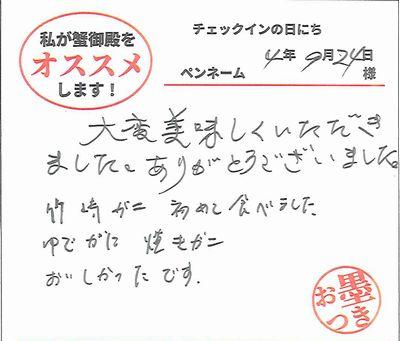 私が蟹御殿を
オススメ
します!
チェックインの日にち
4年 9月24日
ペンネーム 様
大変美味しくいただき
ました。ありがとうございました。
竹崎ガニ 初めて食べました
ゆでがに 焼きガニ
おいしかったです.
お墨つき